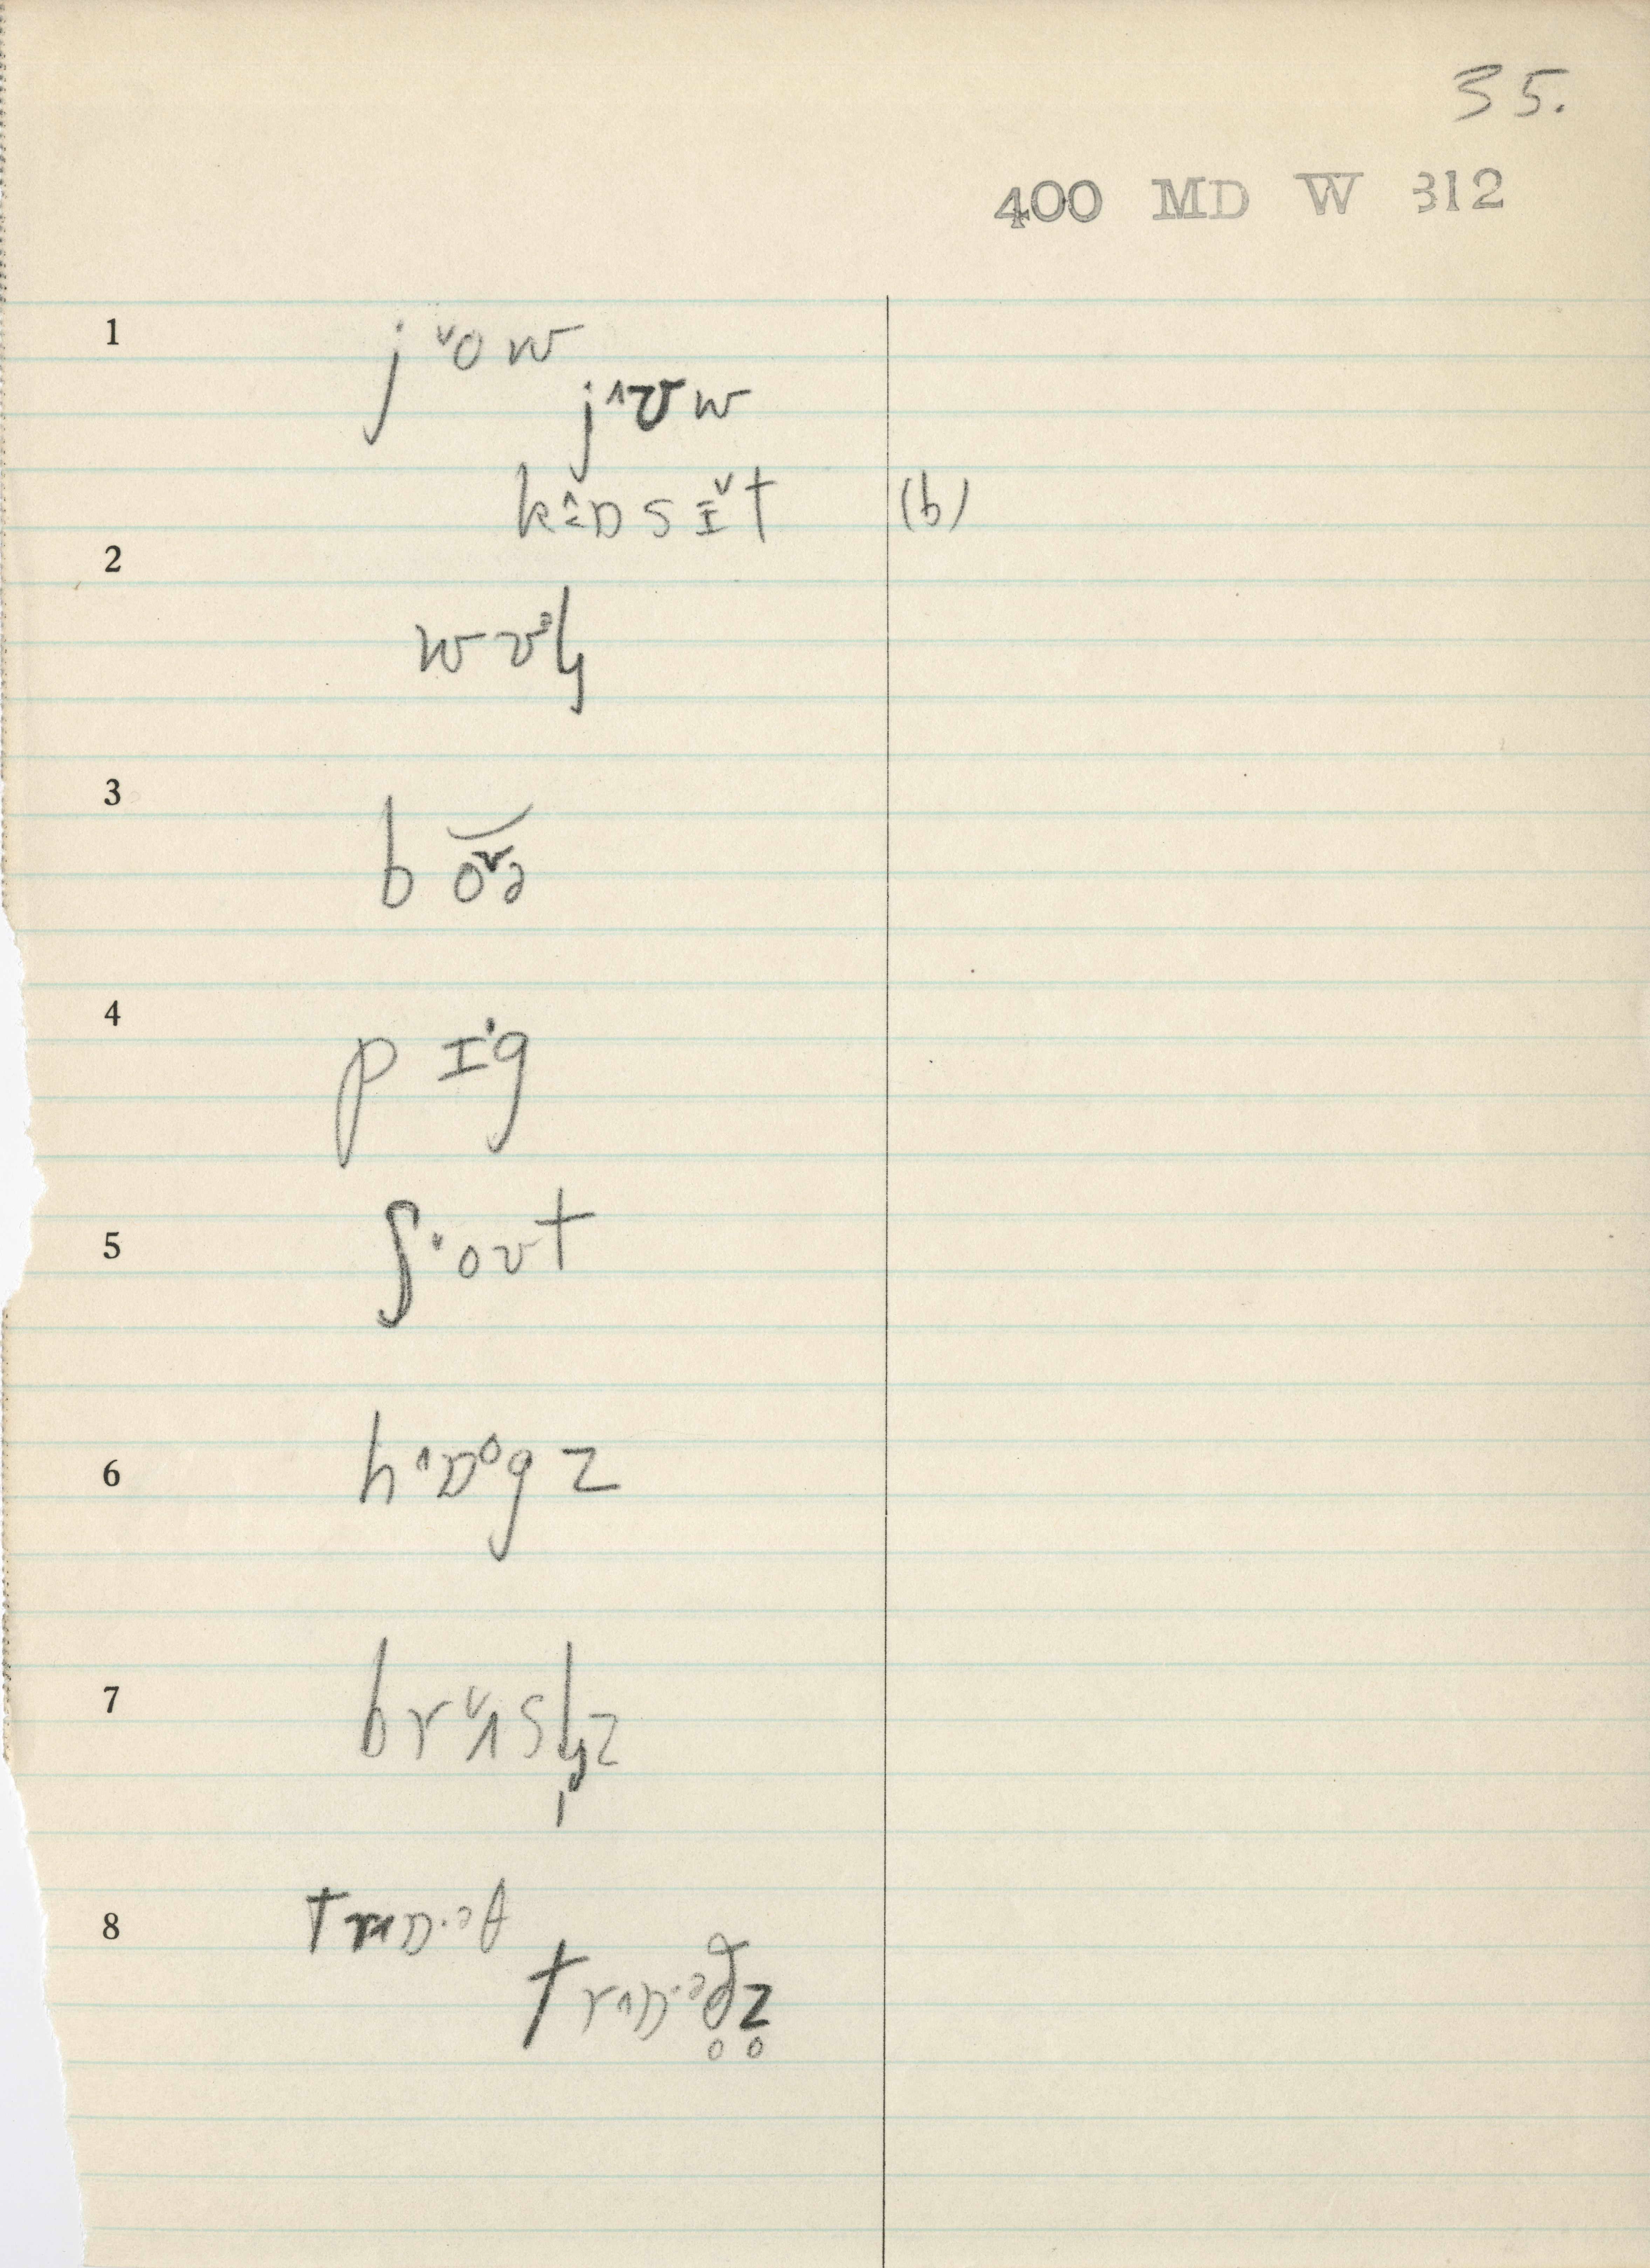 35.
400 MD W 312
1 j ˅o w
j ˄ʊ w
k ˄ɒ s ɪ˅ t (b)
2
w ʊᵊ ɫ
3 b o˅ə
4 p ɪ' g
5 ʃ ˅oʊt
6 h ˄ɒ˄g z
7 b r ˅ʌ s ɫ̩ z
8 t r ˄ɒ·ᵊ θ
t r ˄ɒ·ᵊ ð̥ z̥